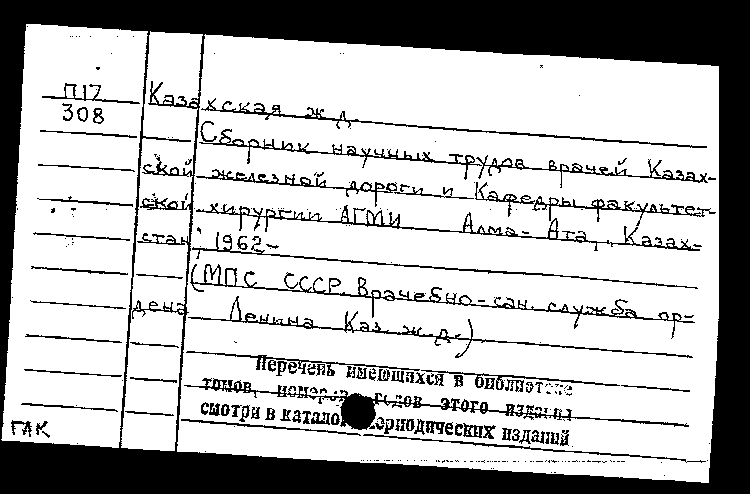 П17
308
Казахская ж.д.
Сборник научных трудов врачей Казах-
ской железной дороги и Кафедры факультет-
ской хирургии АГМИ Алма-Ата, "Казах-
стан", 1962-
(МПС СССР. Врачебно-сан. служба ор-
дена Ленина Каз. ж.д.)
Перечень имеющихся в библиотеке
томов, номеров, годов этого издания
смотри в каталоге периодических изданий
ГАК